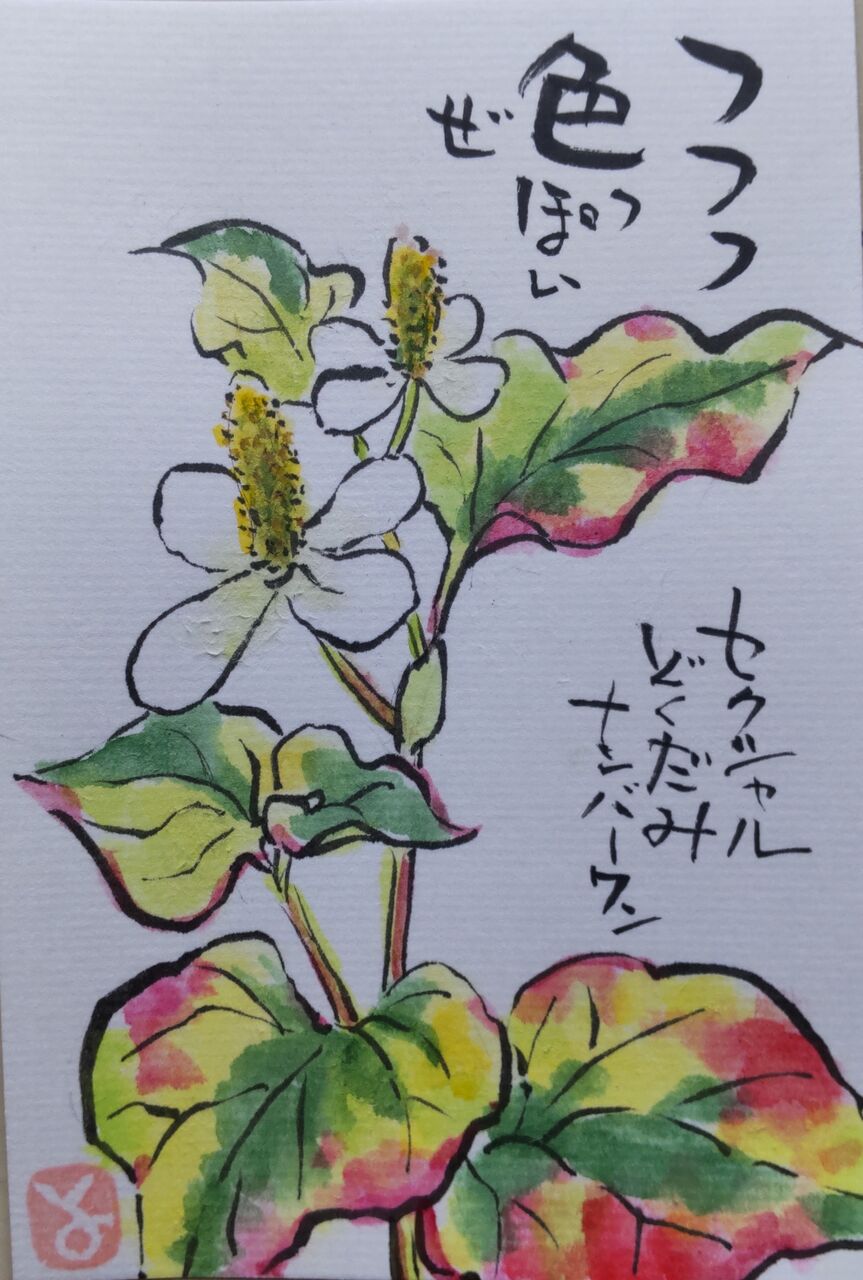 つつつ
色っぽい
ぜ
セクシャル
どくだみ
ナンバーワン